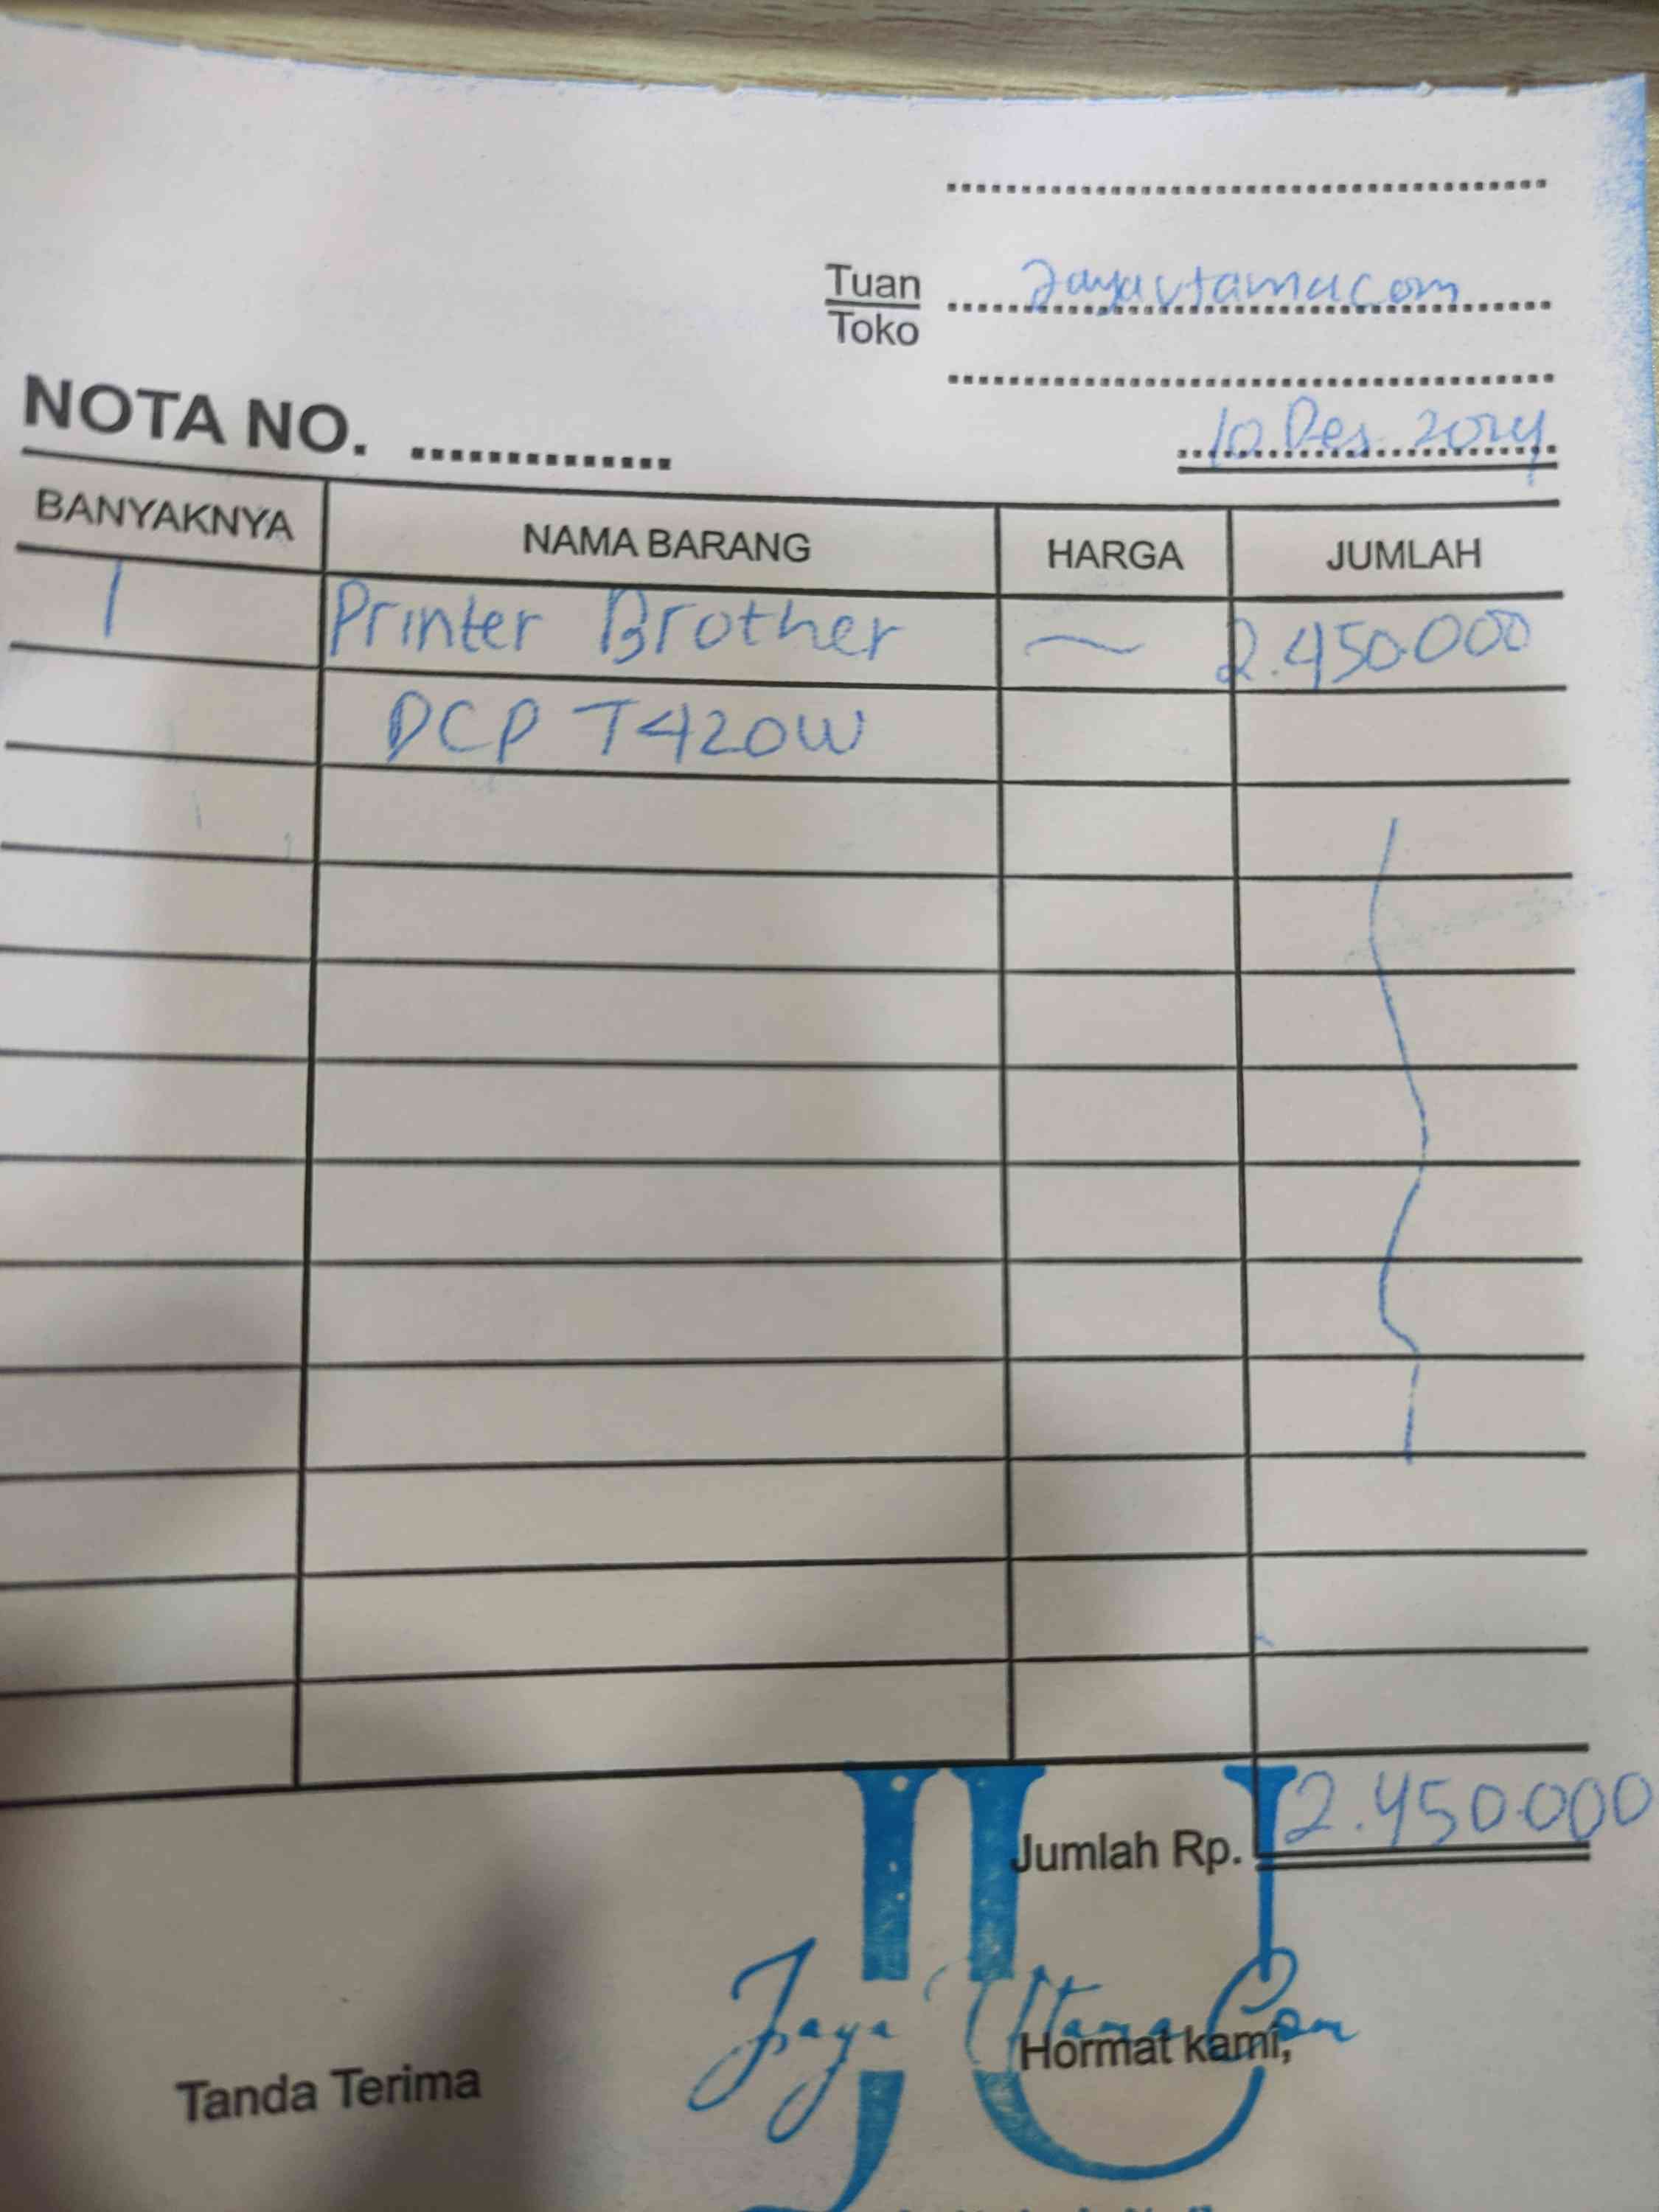 Tuan
Toko
Jayautamacom
NOTA NO. ..............
10 Des 2024
BANYAKNYA NAMA BARANG HARGA JUMLAH
1 Printer Brother 2.450.000
DCP T420W
Jumlah Rp. 2.450.000
JU
Jaya Utama Com
Tanda Terima Hormat kami,